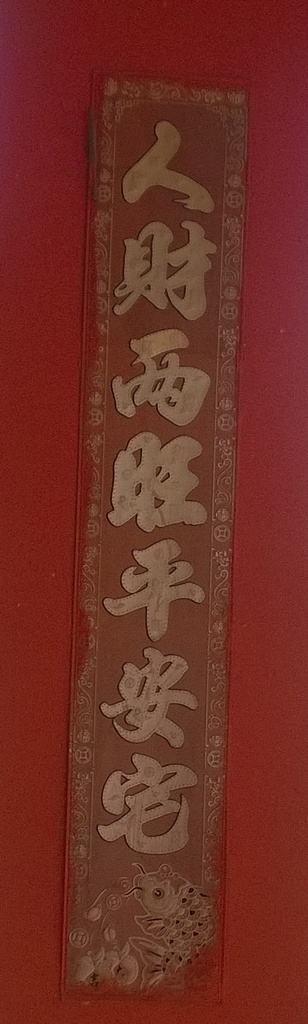 人財兩旺平安宅